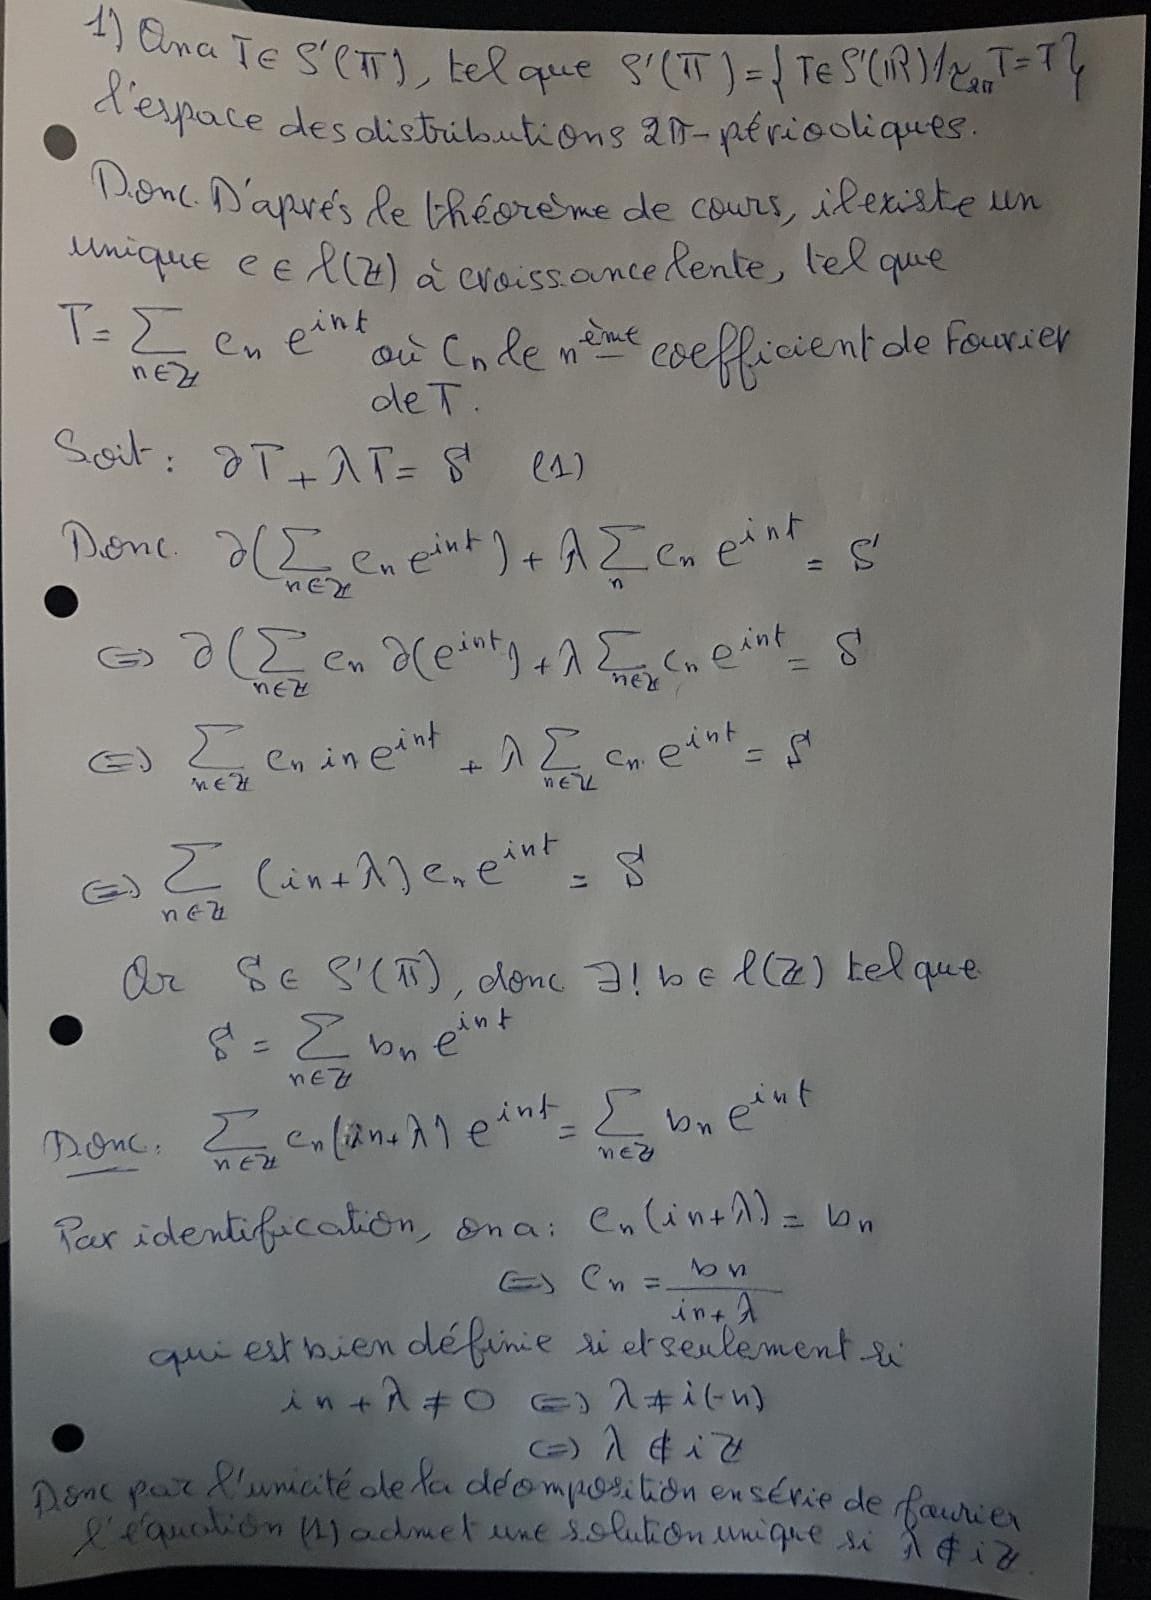 1) On a T ∈ S'(𝕋), tel que S'(𝕋) = { T ∈ S'(ℝ) / τ_{2π} T = T },
l'espace des distributions 2π-périodiques.
Donc. D'aprés le théorème de cours, il existe un
unique c ∈ l(ℤ) à croissance lente, tel que
T = ∑_{n∈ℤ} c_n e^{int} où c_n le n^{ème} coefficient de Fourier
de T.
Soit : ∂T + λT = S (1)
Donc. ∂(∑_{n∈ℤ} c_n e^{int}) + λ ∑_n c_n e^{int} = S
⇔ ∂(∑_{n∈ℤ} c_n ∂(e^{int}) + λ ∑_{n∈ℤ} c_n e^{int} = S
⇔ ∑_{n∈ℤ} c_n in e^{int} + λ ∑_{n∈ℤ} c_n e^{int} = S
⇔ ∑_{n∈ℤ} (in + λ) c_n e^{int} = S
Or S ∈ S'(𝕋), donc ∃! b ∈ l(ℤ) tel que
S = ∑_{n∈ℤ} b_n e^{int}
Donc. ∑_{n∈ℤ} c_n (in + λ) e^{int} = ∑_{n∈ℤ} b_n e^{int}
Par identification, on a : c_n (in + λ) = b_n
⇔ c_n = b_n / (in + λ)
qui est bien définie si et seulement si
in + λ ≠ 0 ⇔ λ ≠ i(-n)
⇔ λ ∉ iℤ
Donc par l'unicité de la décomposition en série de fourier
l'équation (1) admet une solution unique si λ ∉ iℤ.